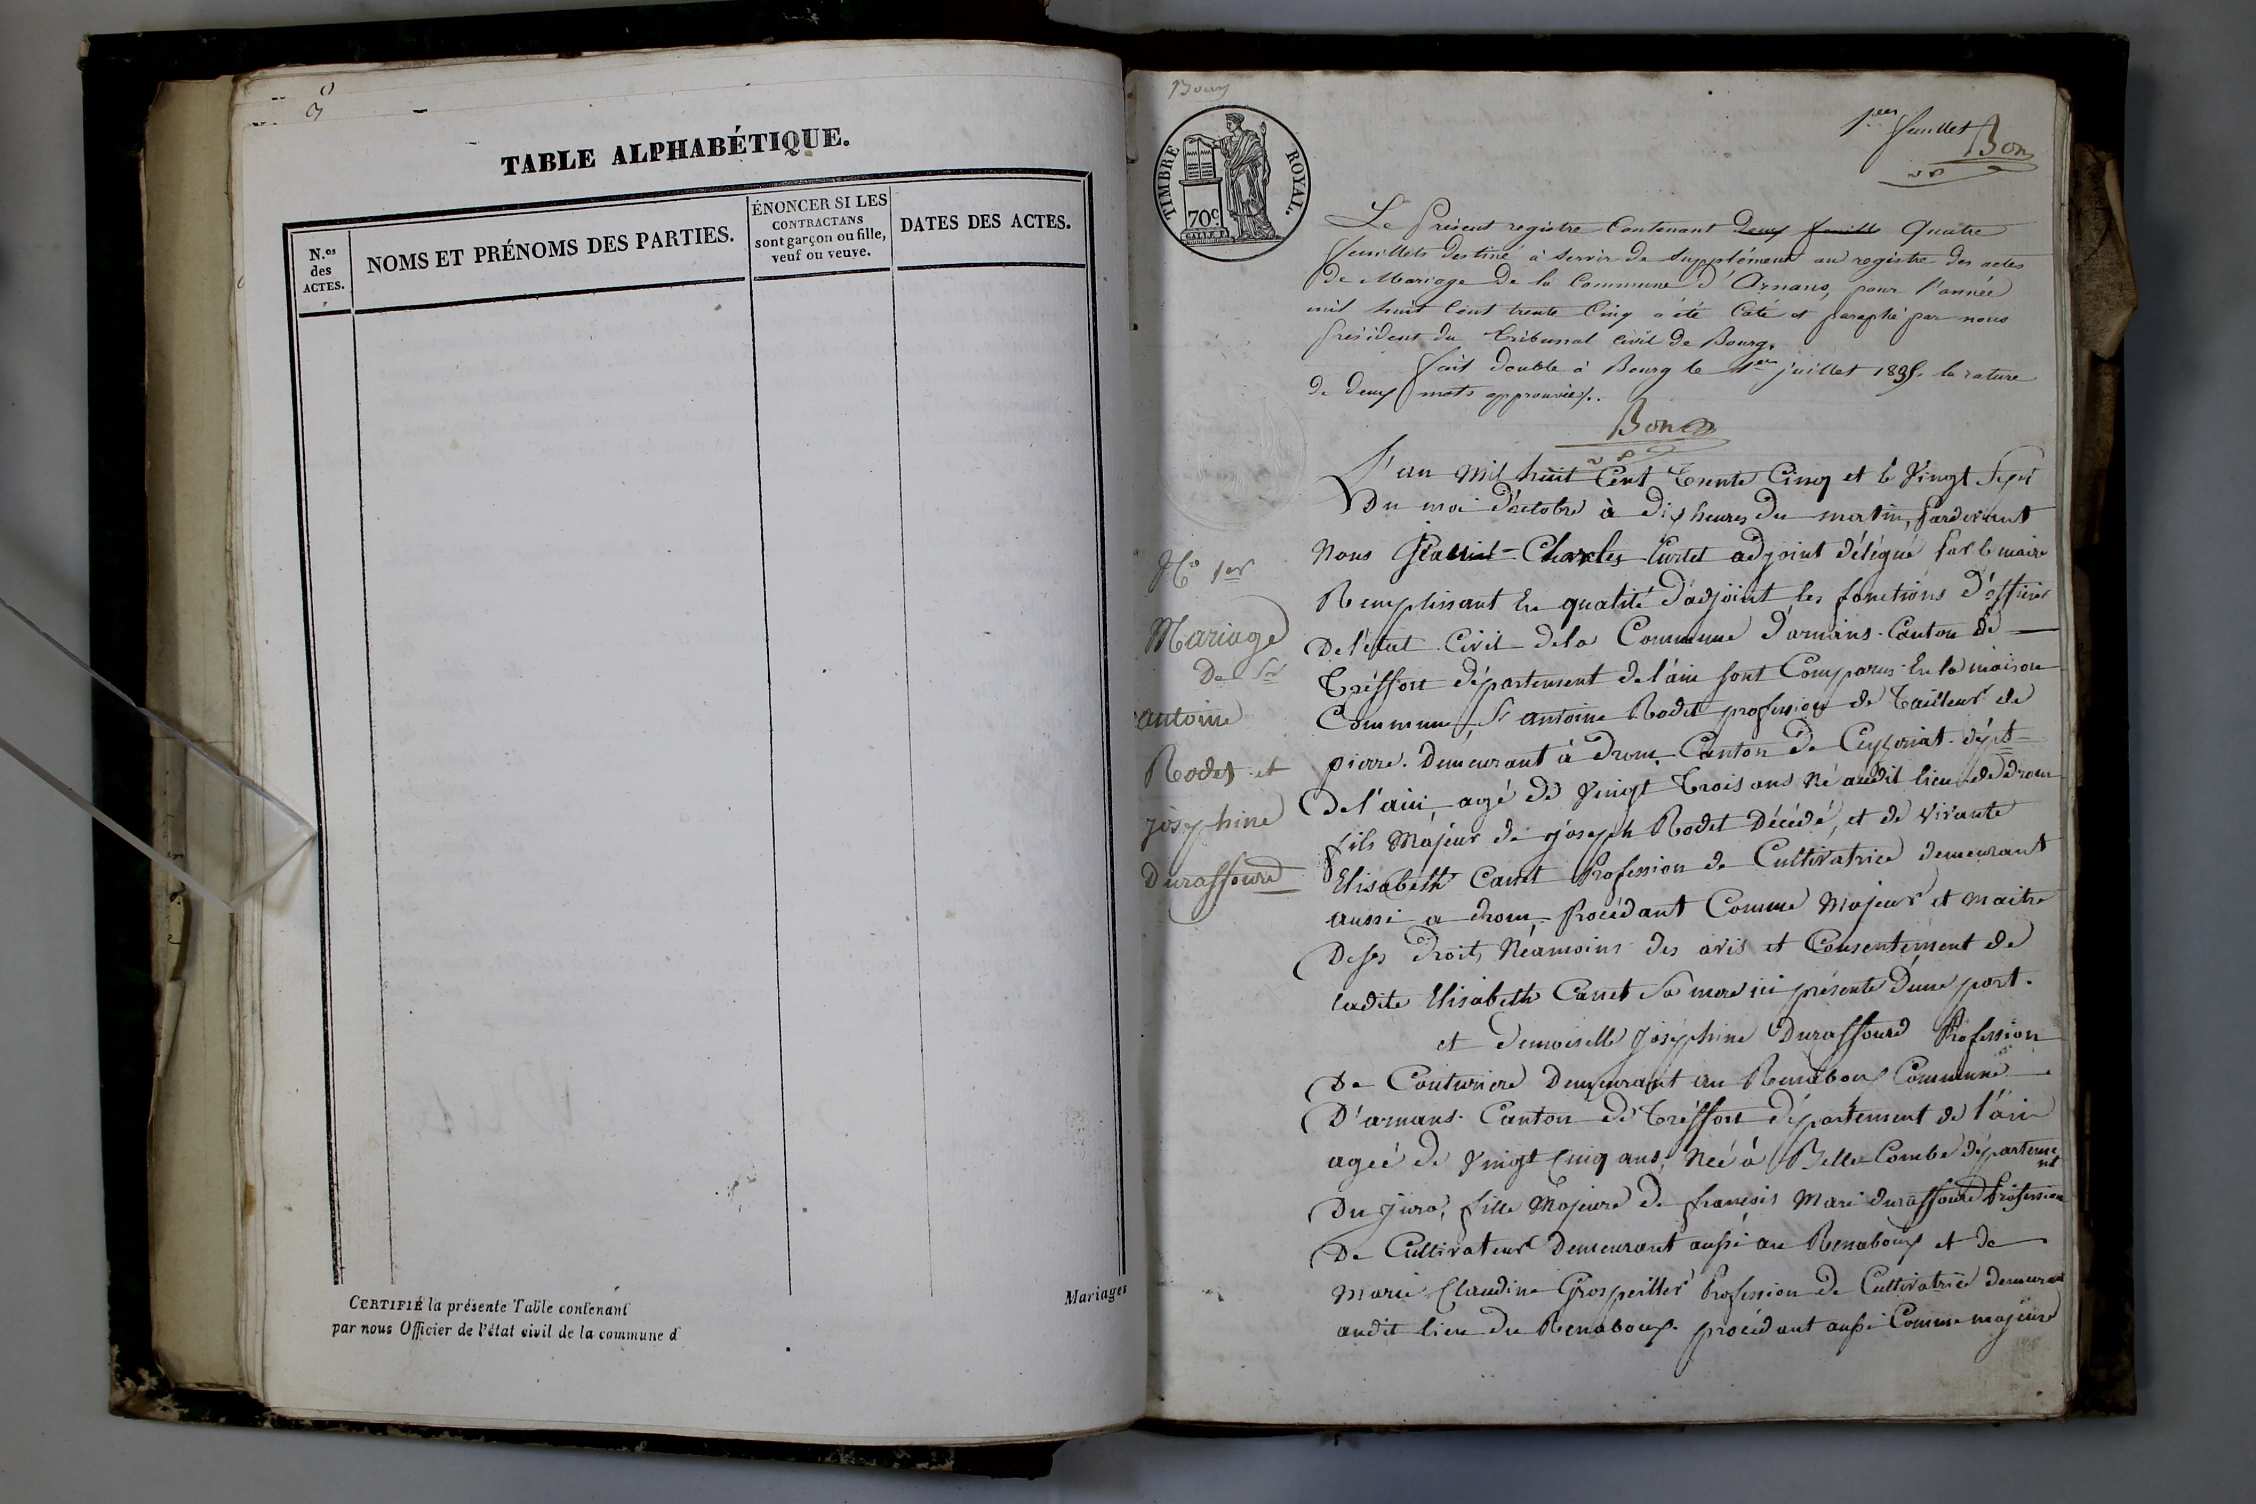 TABLE ALPHABÉTIQUE.
N.os des ACTES.
NOMS ET PRÉNOMS DES PARTIES.
ÉNONCER SI LES
CONTRACTANS
sont garçon ou fille,
veuf ou veuve.
DATES DES ACTES.
CERTIFIÉ la présente Table contenant
par nous Officier de l'état civil de la commune d'
Mariages
Bourg
TIMBRE ROYAL.
70c
1er feuillet
Bon
Le présent registre Contenant deux feuille quatre
feuillets destiné à servir de supplément au registre des actes
de Mariage de la Commune d'Arnans, pour l'année
mil huit Cent trente Cinq a été Coté et paraphé par nous
président du tribunal civil de Bourg.
fait double à Bourg le 1er juillet 1835. la rature
de deux mots approuvée.
Bon
L'an mil huit Cent Trente Cinq et le Vingt Sept
Du moi d'octobre à dix heures du matin, Pardevant
Nous Charles Curtet adjoint délégué par le maire
Remplissant En qualité d'adjoint les fonctions d'officier
De l'état Civil dela Commune d'arnans. Canton de
Tréffort département de l'ain sont Comparus En la maison
Commune, Sr antoine Rodet profession de Tailleur de
pierre. Demeurant à drom. Canton de Ceyzeriat. dépt
De l'ain, agé de Vingt Trois ans Né audit lieu de drom
fils Majeur de joseph Rodet Décédé, et de Vivante
Elisabeth Canet Profession de Cultivatrice demeurant
aussi a drom. Procédant Comme Majeur et maitre
De ses droits, Néamoins des avis et Consentement de
ladite Elisabeth Canet Sa mere ici présente D'une part.
et Demoiselle joséphine Duraffourd Profession
De Couturiere Demeurant au Renaboux Commune
D'arnans. Canton de Tréffort département de l'ain
ageé de Vingt Cinq ans, Née à Belle Combe département
Du jura, fille Majeure de françois Mari duraffourd Profession
De Cultivateur Demeurant aussi au Renaboux et de
Marie Claudine Grospeiller Profession de Cultivatrice demeurant
audit lieu du Renaboux. procédant aussi Comme majeure
No 1er
Mariage
De Sr
antoine
Rodet et
joséphine
Duraffourd